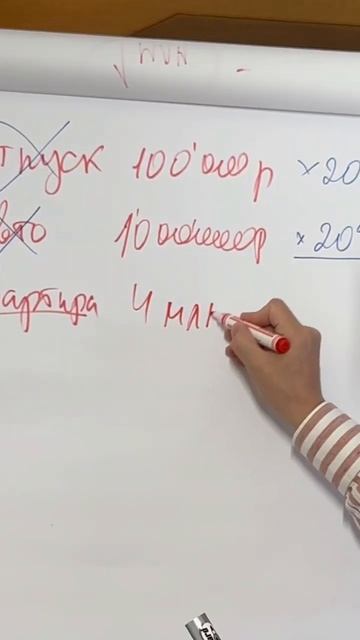 тпуск 100'000 р × 20
вто 1'000000 р × 20%
артира 4 млн